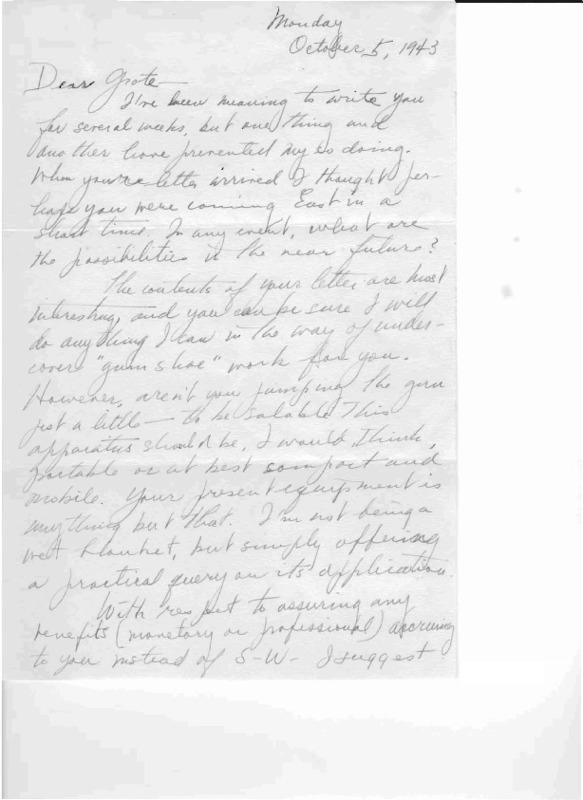 Monday
October 5, 1943
Dear Grote—
I've been meaning to write you
for several weeks, but one thing and
another have prevented my so doing.
When your letter arrived I thought per-
haps you were coming East in a
short time. In any event, what are
the possibilities in the near future?
The contents of your letter are most
interesting, and you can be sure I will
do anything I can in the way of under-
cover "gum shoe" work for you.
However, aren't you jumping the gun
just a little — to be salable this
apparatus should be, I would think,
portable or at best compact and
mobile. Your present equipment is
anything but that. I'm not being a
wet blanket, but simply offering
a practical query on its application.
With respect to assuring any
benefits (monetary or professional) accruing
to you instead of S-W- I suggest